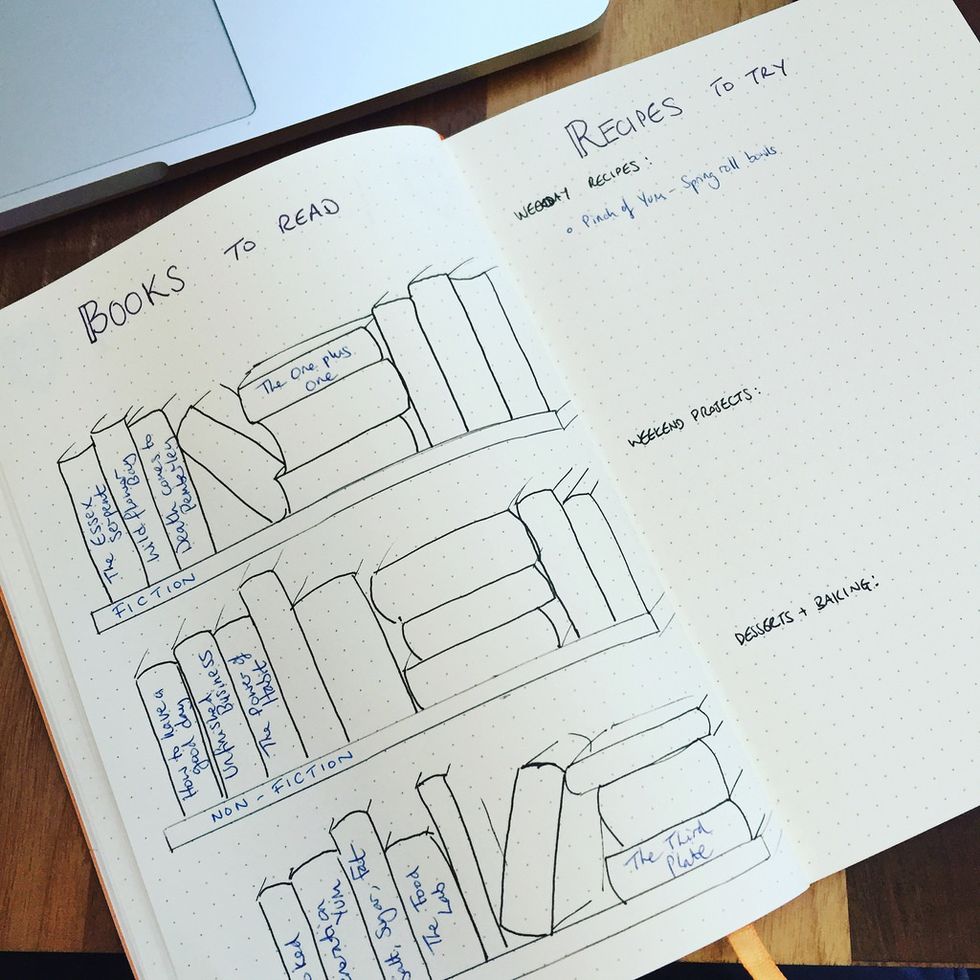 BOOKS TO READ
The One plus
One
The Essex
Serpent
Wild Flower
Death Comes to
Pemberley
FICTION
How to have a
good day
Unfinished
Business
The Power of
Habit
NON-FICTION
Yum
Salt, Sugar, Fat
The Food
Lab
The Third
Plate
RECIPES TO TRY
WEEKDAY RECIPES:
Pinch of Yum - Spring roll bowls
WEEKEND PROJECTS:
DESSERTS + BAKING: